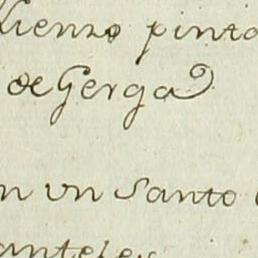 lienzo pinta
de Gerga
n un Santo
anteles